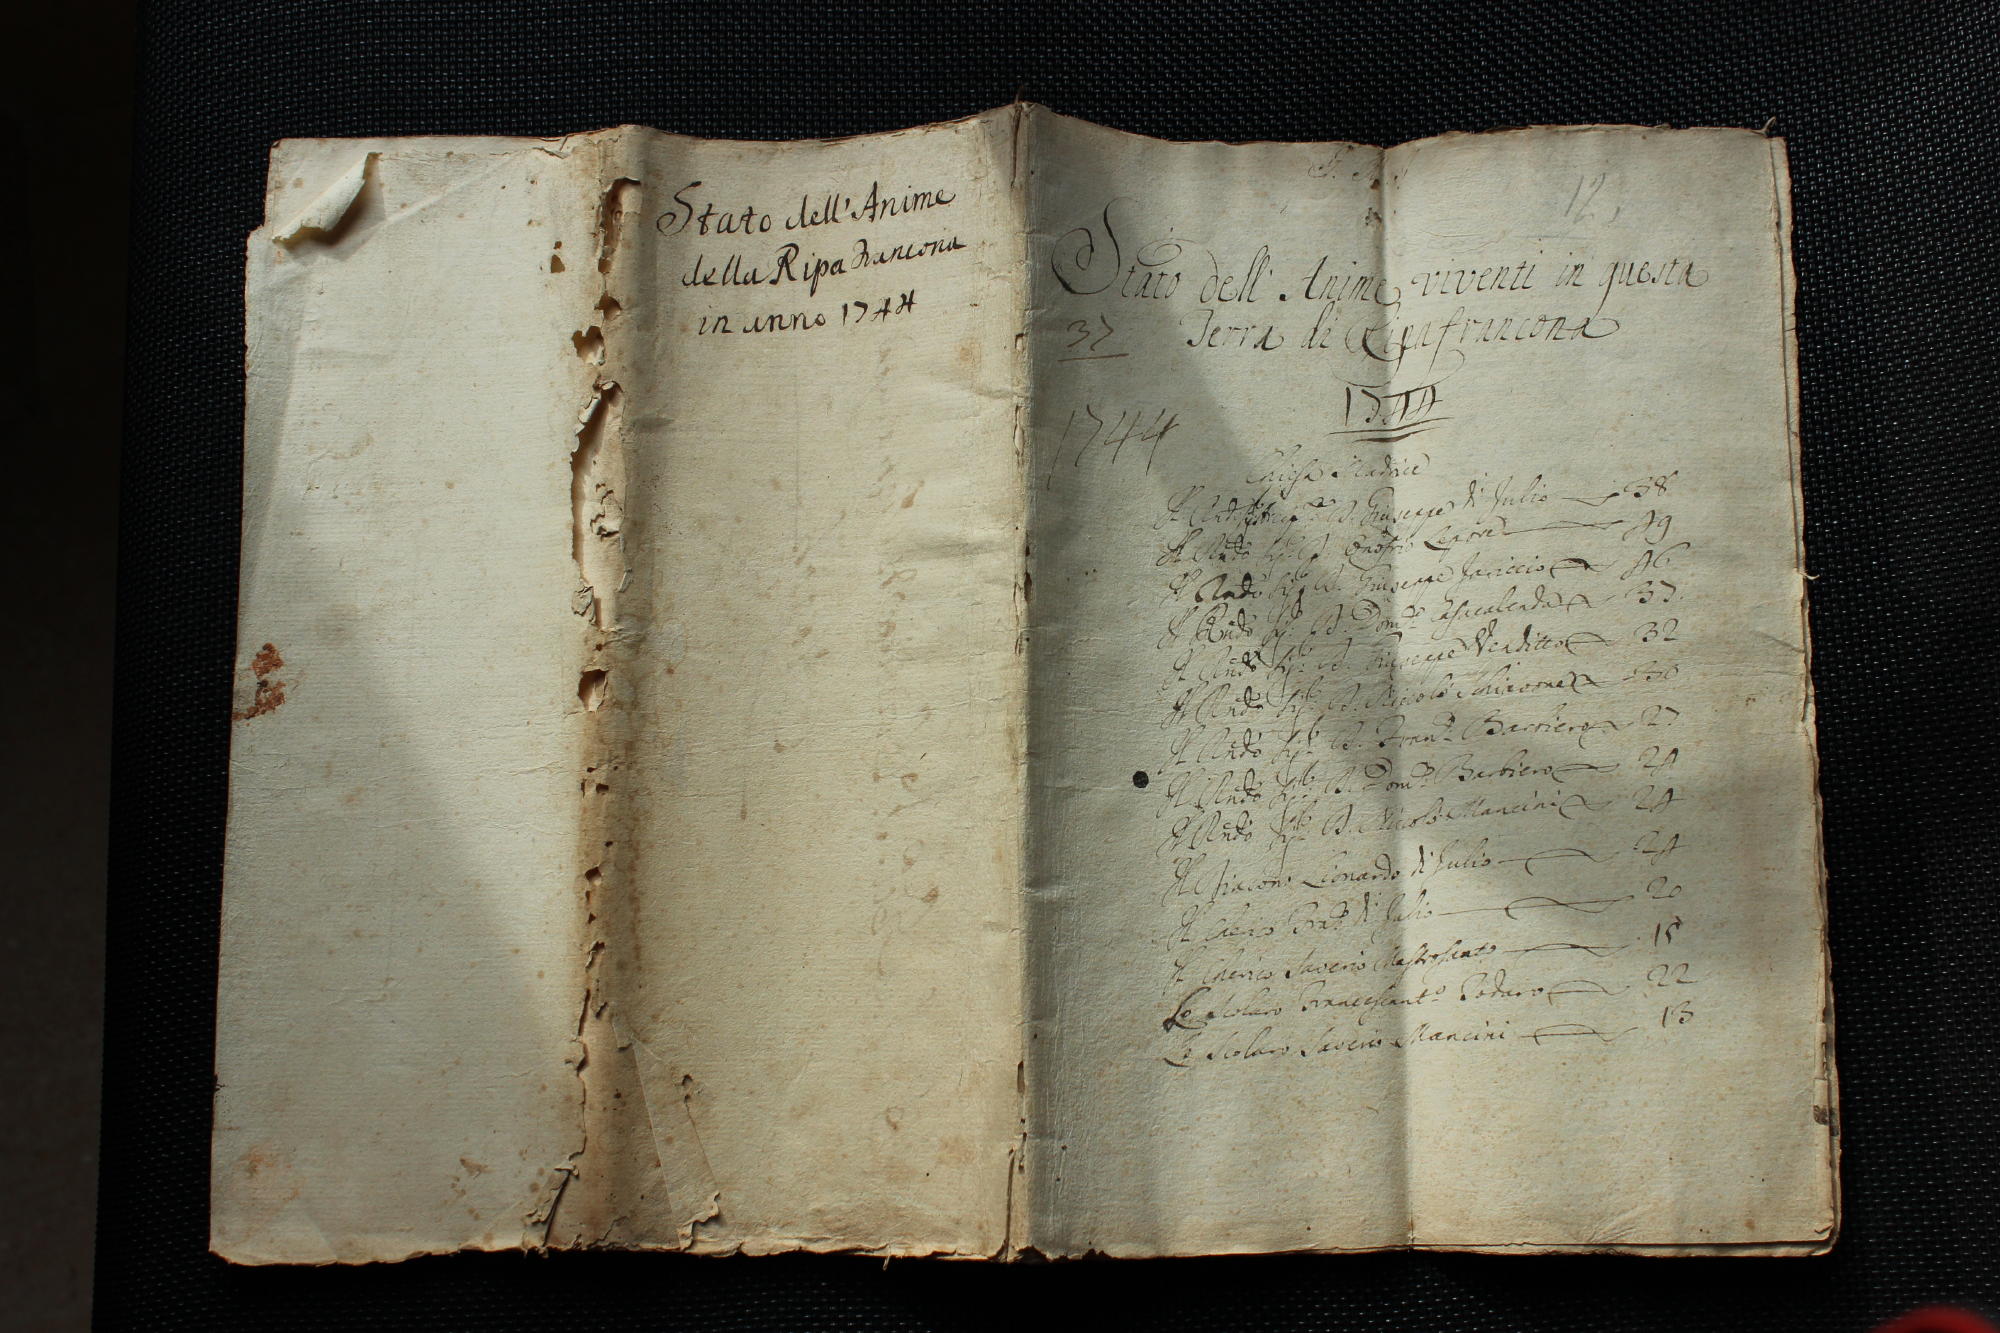 Stato dell'Anime
della Ripa Francona
in anno 1744
12
Stato dell'Anime viventi in questa
37 Terra di Ripafrancona
1744
1744
Chiesa Madrice
D. Giuseppe di Julio 38
Il Rndo Sig.r D. Onofrio Lepore 49
Il Rndo Sig.r D. Giuseppe Jariccio 46
Il Rndo Sig.r D. Dom.co Casacalenda 37
Il Rndo Sig.r D. Giuseppe Venditto 32
Il Rndo Sig.r D. Nicolò Schiavone 36
Il Rndo Sig.r D. Fran.co Barbiero 27
Il Rndo Sig.r D. Dom.co Barbiero 24
Il Rndo Sig.r D. Nicolò Mancini 24
Il Diacono Leonardo di Julio 24
Il Clerico di Julio 20
Il Clerico Saverio 18
Lo Scolaro Francescant.o Podaro 22
Lo Scolaro Saverio Mancini 13